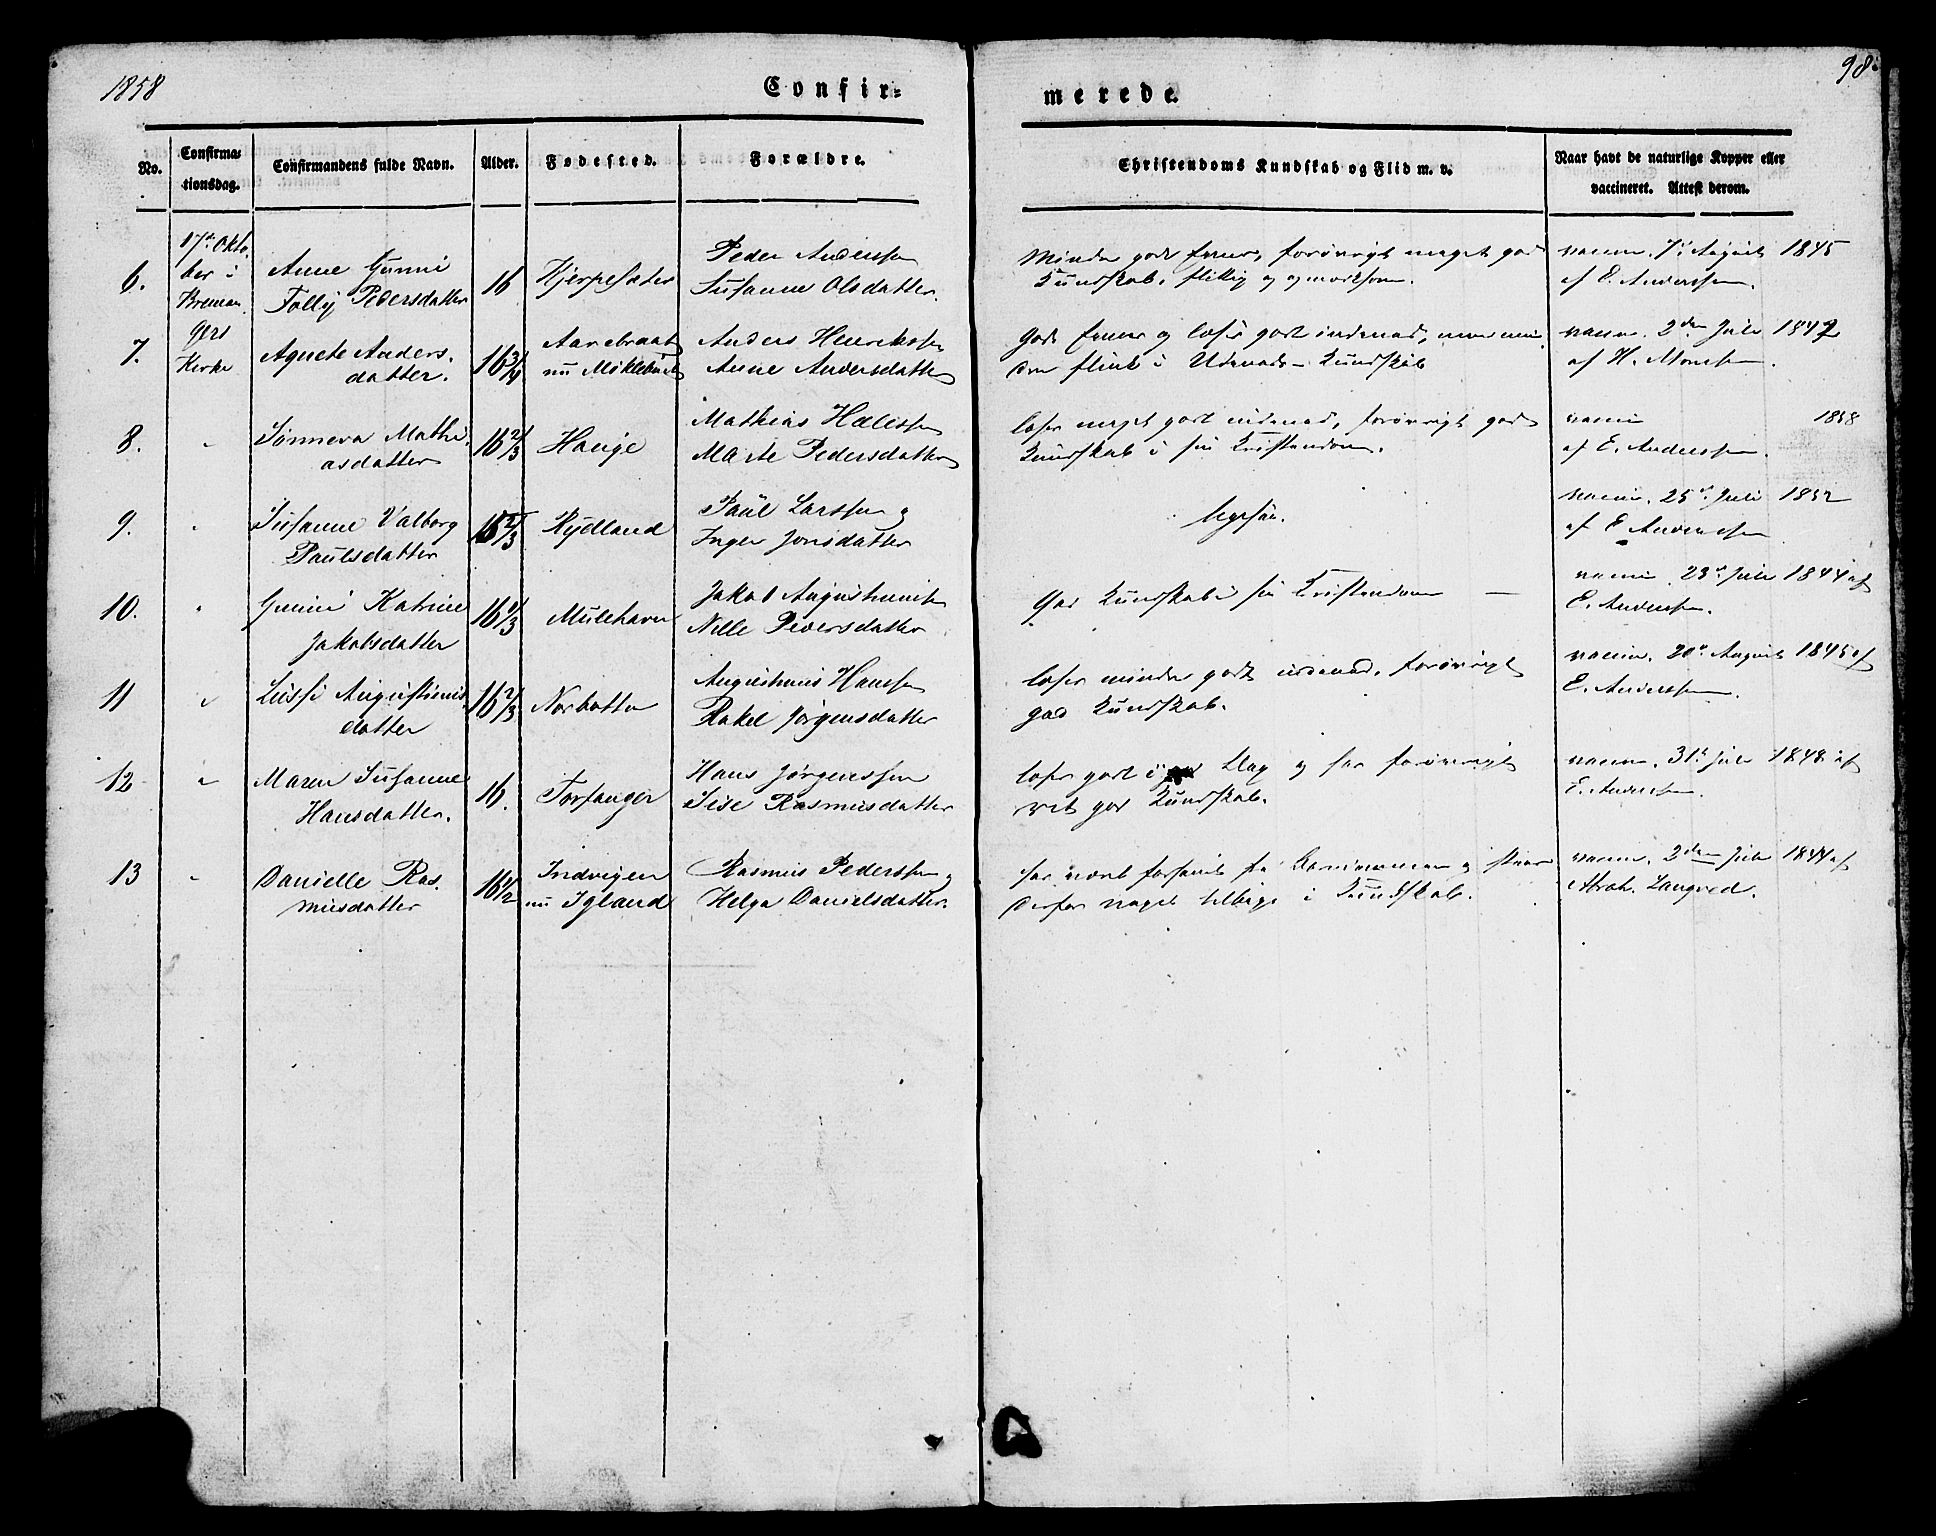 1858
Confir-
merede.
98
No.
Confirma-
tionsdag.
Confirmandens fulde Navn.
Alder.
Fødested.
Forældre.
Christendoms Kundskab og Flid m. v.
Naar havt de naturlige Kopper eller
vaccineret. Attest derom.
6.
17de Okto-
ber i
Breman-
gers
Kirke
Anne Gunni
Folly Pedersdatter
16
Hjerpesæter
Peder Anderssen
Susanne Olsdatter.
Minder godt Evner, forøvrigt meget god
Kundskab, flittig og opmærksom.
vaccin. 7de August 1845
af E. Anderssen.
7.
Agnete Anders-
datter.
16 3/4
Aarebraat
nu Møklebust
Anders Henrikssen
Anne Andersdatter
Gode Evner og læser godt indenad, men min-
dre flink i Udenads-Kundskab
vaccin. 2den Juli 1842
af H. Monssen.
8.
"
Sønneva Mathi-
asdatter
16 2/3
Hauge
Mathias
Marte Pedersdatter
læser meget godt indenad, forøvrigt god
Kundskab i sin Kristendom.
vaccin 1858
af E. Anderssen.
9.
"
Susanne Valborg
Paulsdatter
16 2/3
Rydland
Paul Larssen og
Inger Jonsdatter
ligesaa.
vaccin. 25de Juli 1852
af E. Anderssen
10.
"
Gunni Katrine
Jakobsdatter
16 1/3
Mulehavn
Jakob Augustinussen
Nille Pedersdatter
God Kundskab i sin Kristendom —
vaccin. 23de Juli 1844 af
E. Anderssen.
11
"
Lussi Augustinus-
datter
16 2/3
Norbotten
Augustinus Hanssen
Rakel Jørgensdatter
læser mindre godt indenad, forøvrigt
god Kundskab.
vaccin. 20de August 1845 af
E. Anderssen.
12
"
Maren Susanne
Hansdatter.
16.
Torsanger
Hans Jørgenssen
Sise Rasmusdatter
læser godt i Dag og har forøvrigt
ret god Kundskab.
vaccin. 31te Juli 1848 af
E. Anderssen.
13
"
Danielle Ras-
musdatter
16 1/2
Indvigen
nu Igland
Rasmus Pederssen og
Helga Danielsdatter.
har været forsømt fra Barndommen og staar
derfor noget tilbage i Kundskab.
vaccin. 2den Juli 1844 af
Abrah. Langved.